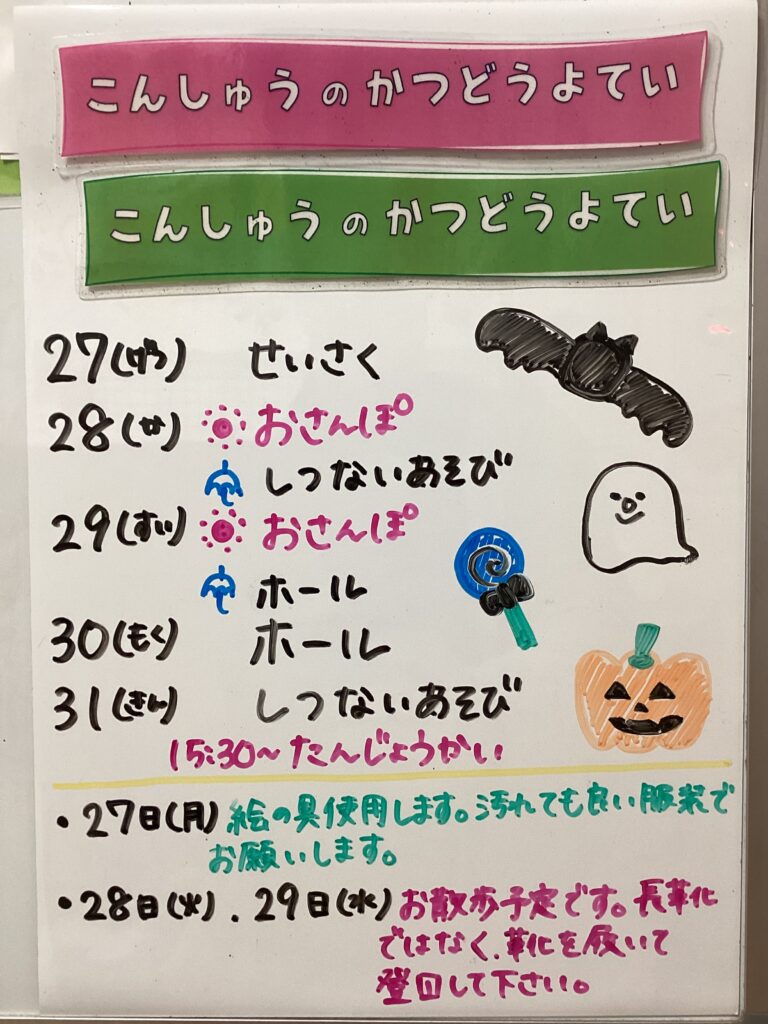 こんしゅうのかつどうよてい
こんしゅうのかつどうよてい
27(げつ) せいさく
28(か) おさんぽ
しつないあそび
29(すい) おさんぽ
ホール
30(もく) ホール
31(きん) しつないあそび
15:30〜たんじょうかい
・27日(月)絵の具使用します。汚れても良い服装で
お願いします。
・28日(火).29日(水)お散歩予定です。長靴
ではなく、靴を履いて
登園して下さい。